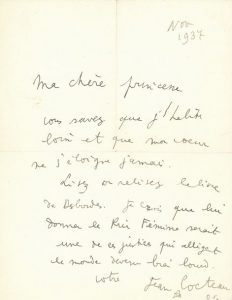 Nov
1937
Ma chère princesse
vous savez que j'habite
loin et que mon coeur
ne s'éloigne jamais.
Lisez ou relisez le livre
de Desbordes. Je crois que lui
donner le Prix Femina serait
une de ces justices qui allègent
le monde devenu très lourd
votre
Jean Cocteau